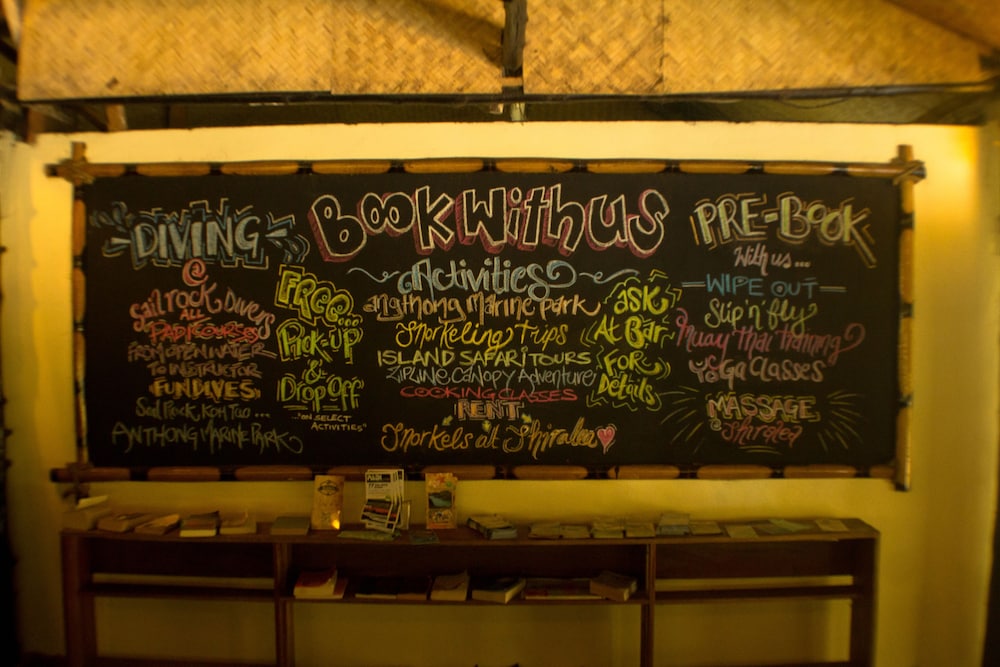 DIVING
@
Sail rock Divers
ALL
PADI COURSES
FROM OPEN WATER
TO INSTRUCTOR
FUN DIVES
Sail Rock, Koh Tao ...
ANTHONG MARINE PARK
FREE...
Pick-UP
&
Drop OFF
..."ON SELECT
ACTIVITIES"
BOOK With us
Activities
angthong Marine park
Snorkeling Trips
ISLAND SAFARI TOURS
ZIPLINE CANOPY Adventure
COOKING CLASSES
RENT
Snorkels at Shiralea
ask
At Bar
FOR
Details
PRE-BOOK
With us...
WIPE OUT
Slip 'n' fly
Muay Thai Training
YOGa CLasses
MASSAGE
@